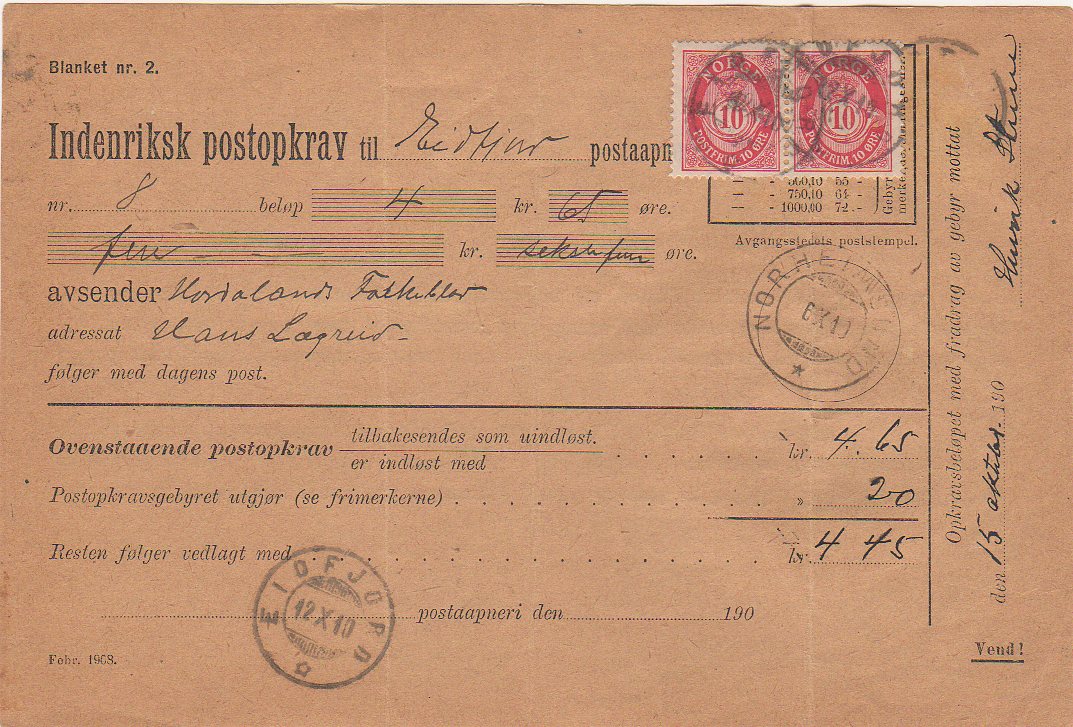 Blanket nr. 2.
NORGE 10 POSTFRIM. 10 ØRE
NORGE 10 POSTFRIM. 10 ØRE
Indenriksk postopkrav til Eidfjord postaapn
— — - 500,10 55 -
— — - 750,10 64 -
— — - 1000,00 72 -
Gebyr
nr. 8 beløp 4 kr. 65 øre.
fire kr. sekstifem øre.
Avgangsstedets poststempel.
NORHEIMSUND
6 X 10
avsender Hordalands Folkeblad
adressat Hans Lægreid
følger med dagens post.
Ovenstaaende postopkrav tilbakesendes som uindløst.
er indløst med kr. 4.65
Postopkravsgebyret utgjør (se frimerkerne) » 20
Resten følger vedlagt med kr. 4 45
EIDFJORD
12 X 10
postaapneri den 190
Febr. 1908.
Opkravsbeløpet med fradrag av gebyr mottat
den 15 oktbr. 190
Vend!